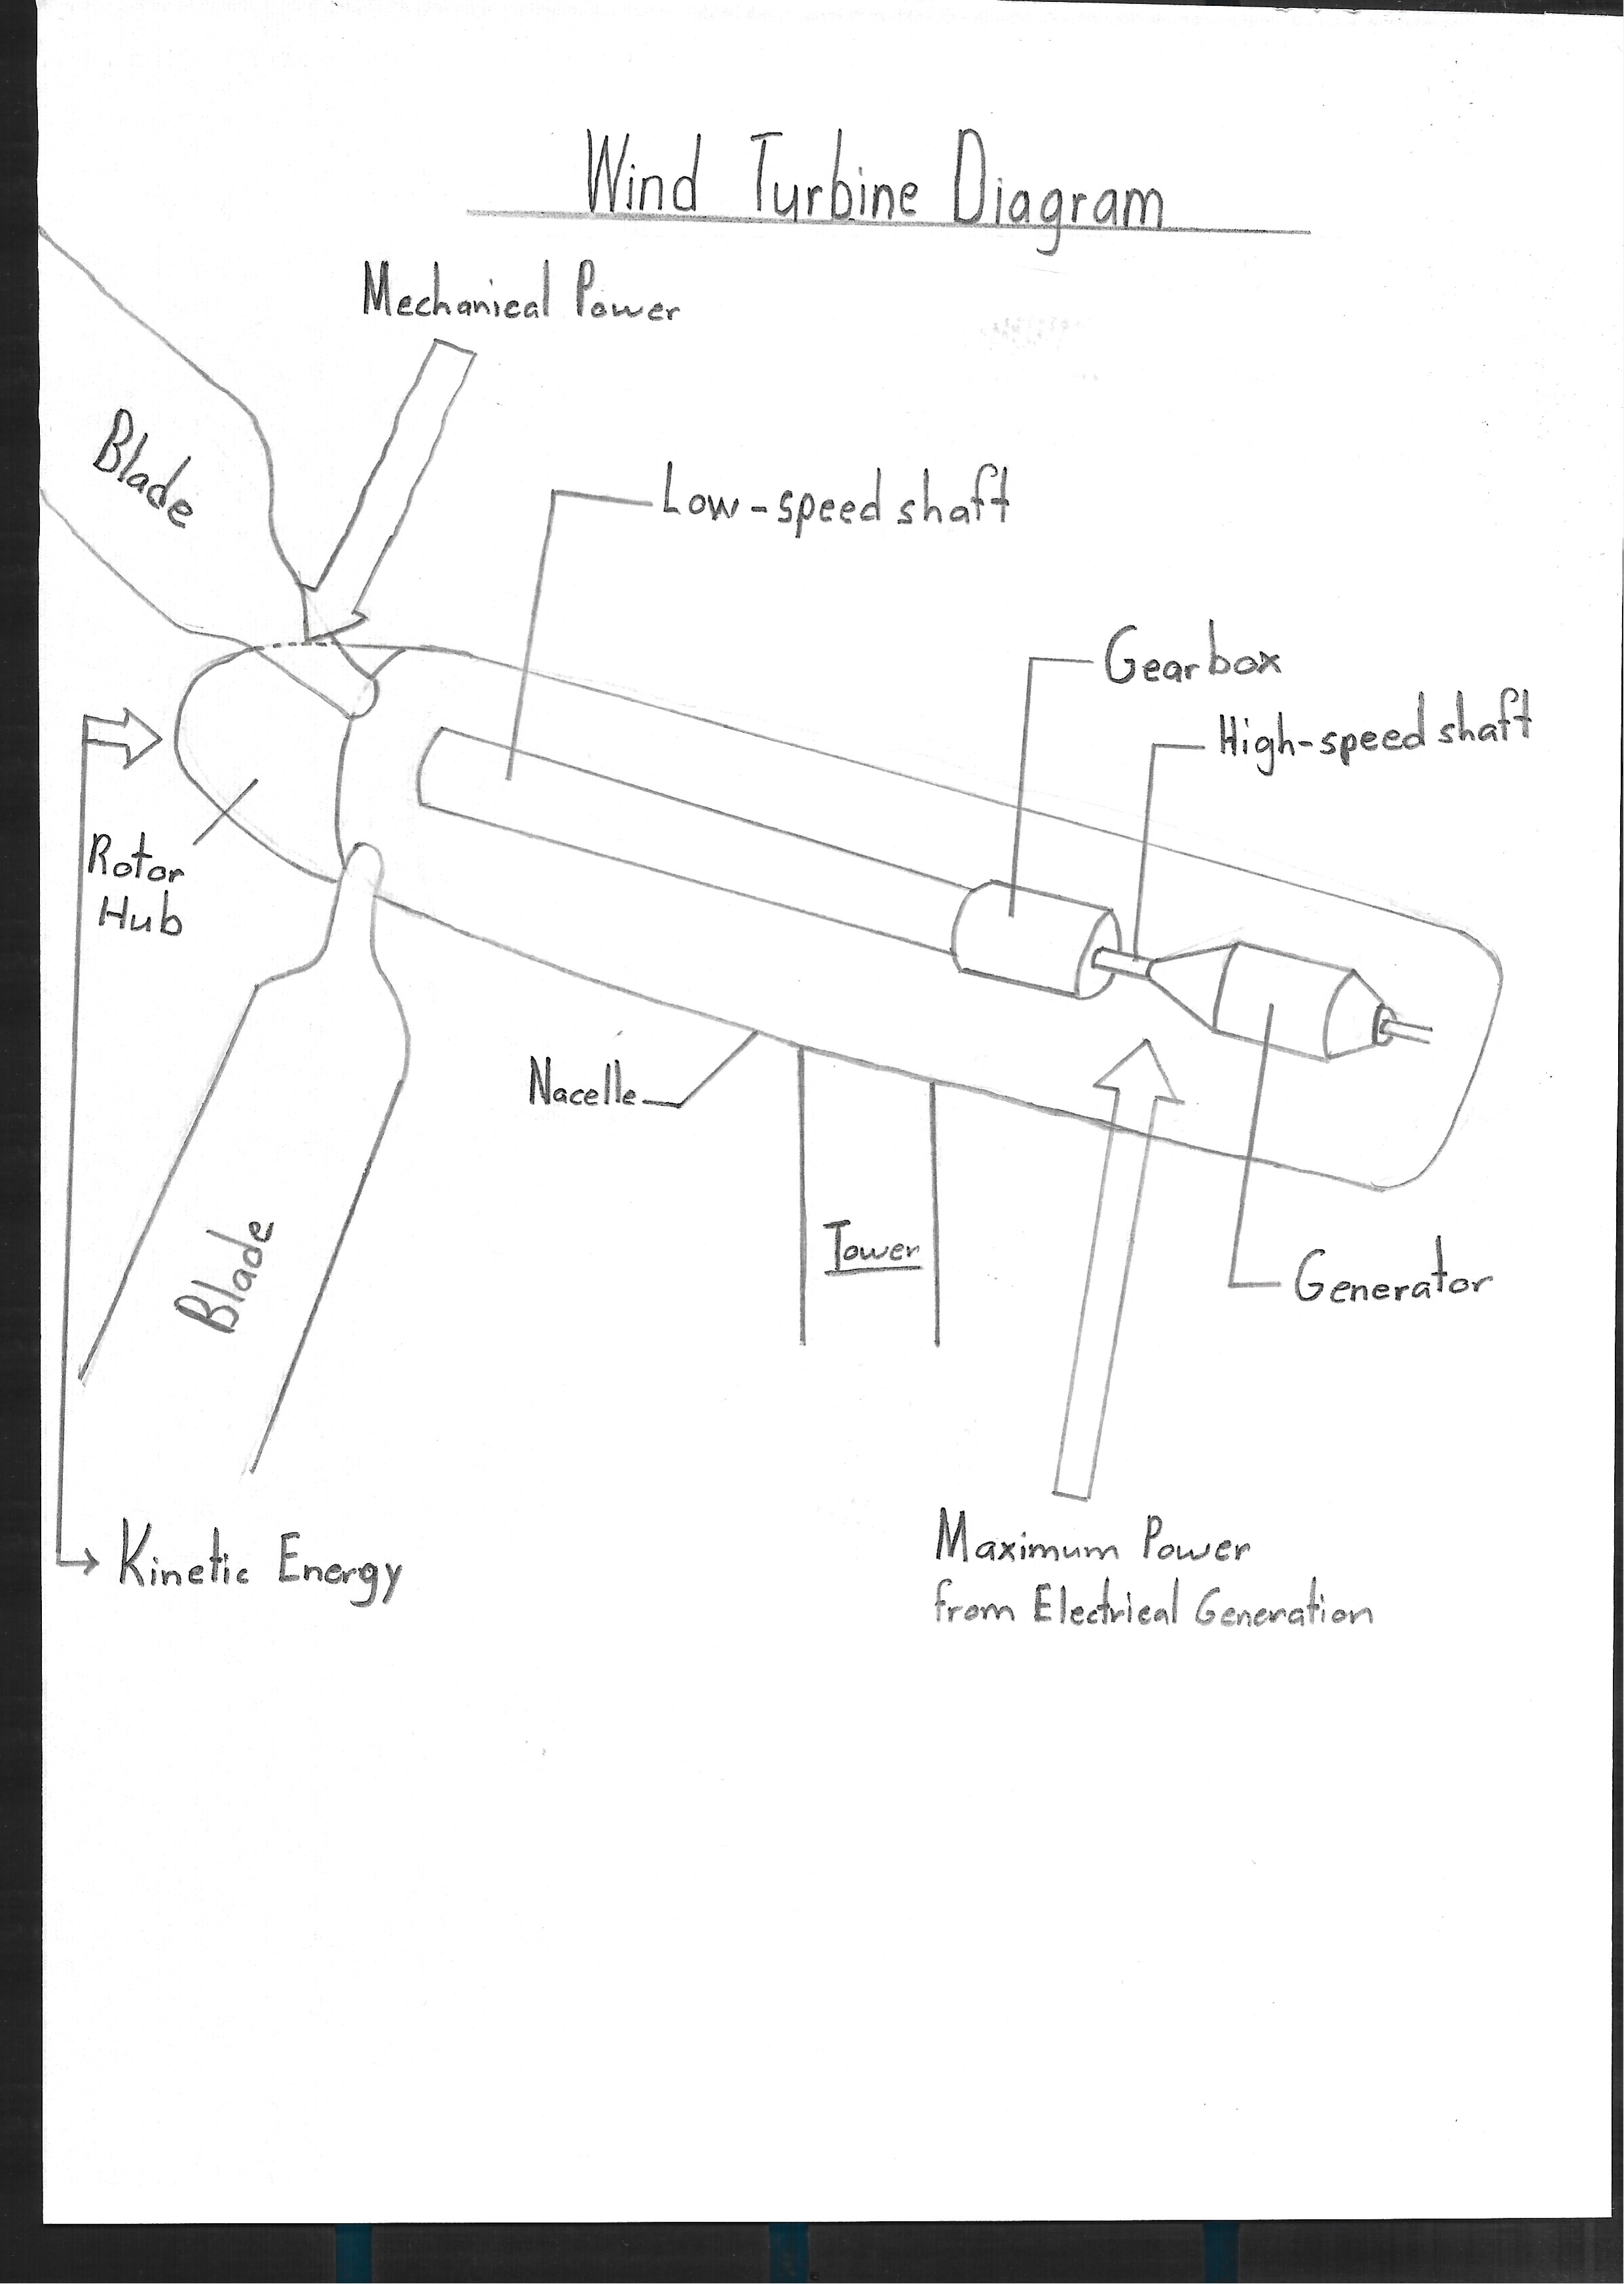 Wind Turbine Diagram
Mechanical Power
Blade
Low-speed shaft
Gearbox
High-speed shaft
Rotor
Hub
Nacelle
Tower
Blade
Generator
Kinetic Energy
Maximum Power
from Electrical Generation